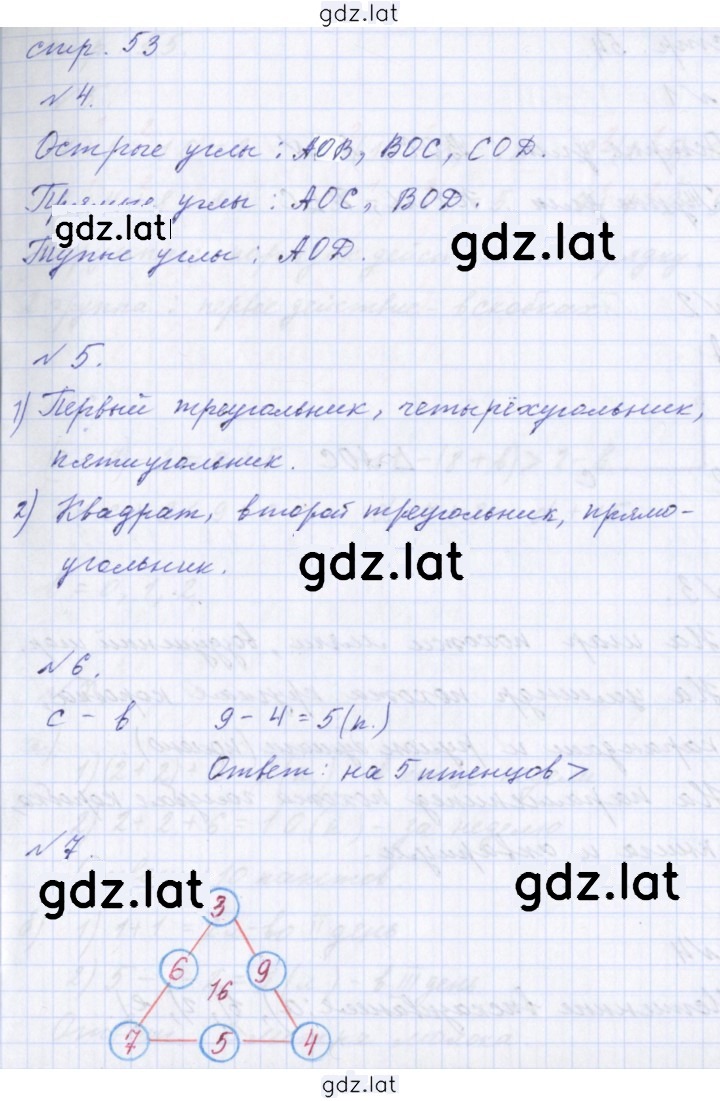 gdz.lat
стр. 53
№ 4.
Острые углы : АОВ, ВОС, СОД.
Прямые углы : АОС, ВОД.
gdz.lat
gdz.lat
Тупые углы : АОД.
№ 5.
1) Первый треугольник, четырёхугольник,
пятиугольник.
2) Квадрат, второй треугольник, прямо-
угольник.
gdz.lat
№6.
с - в 9 - 4 = 5 (п.)
Ответ: на 5 птенцов >
№7.
gdz.lat
gdz.lat
3
6 9
16
7 5 4
gdz.lat